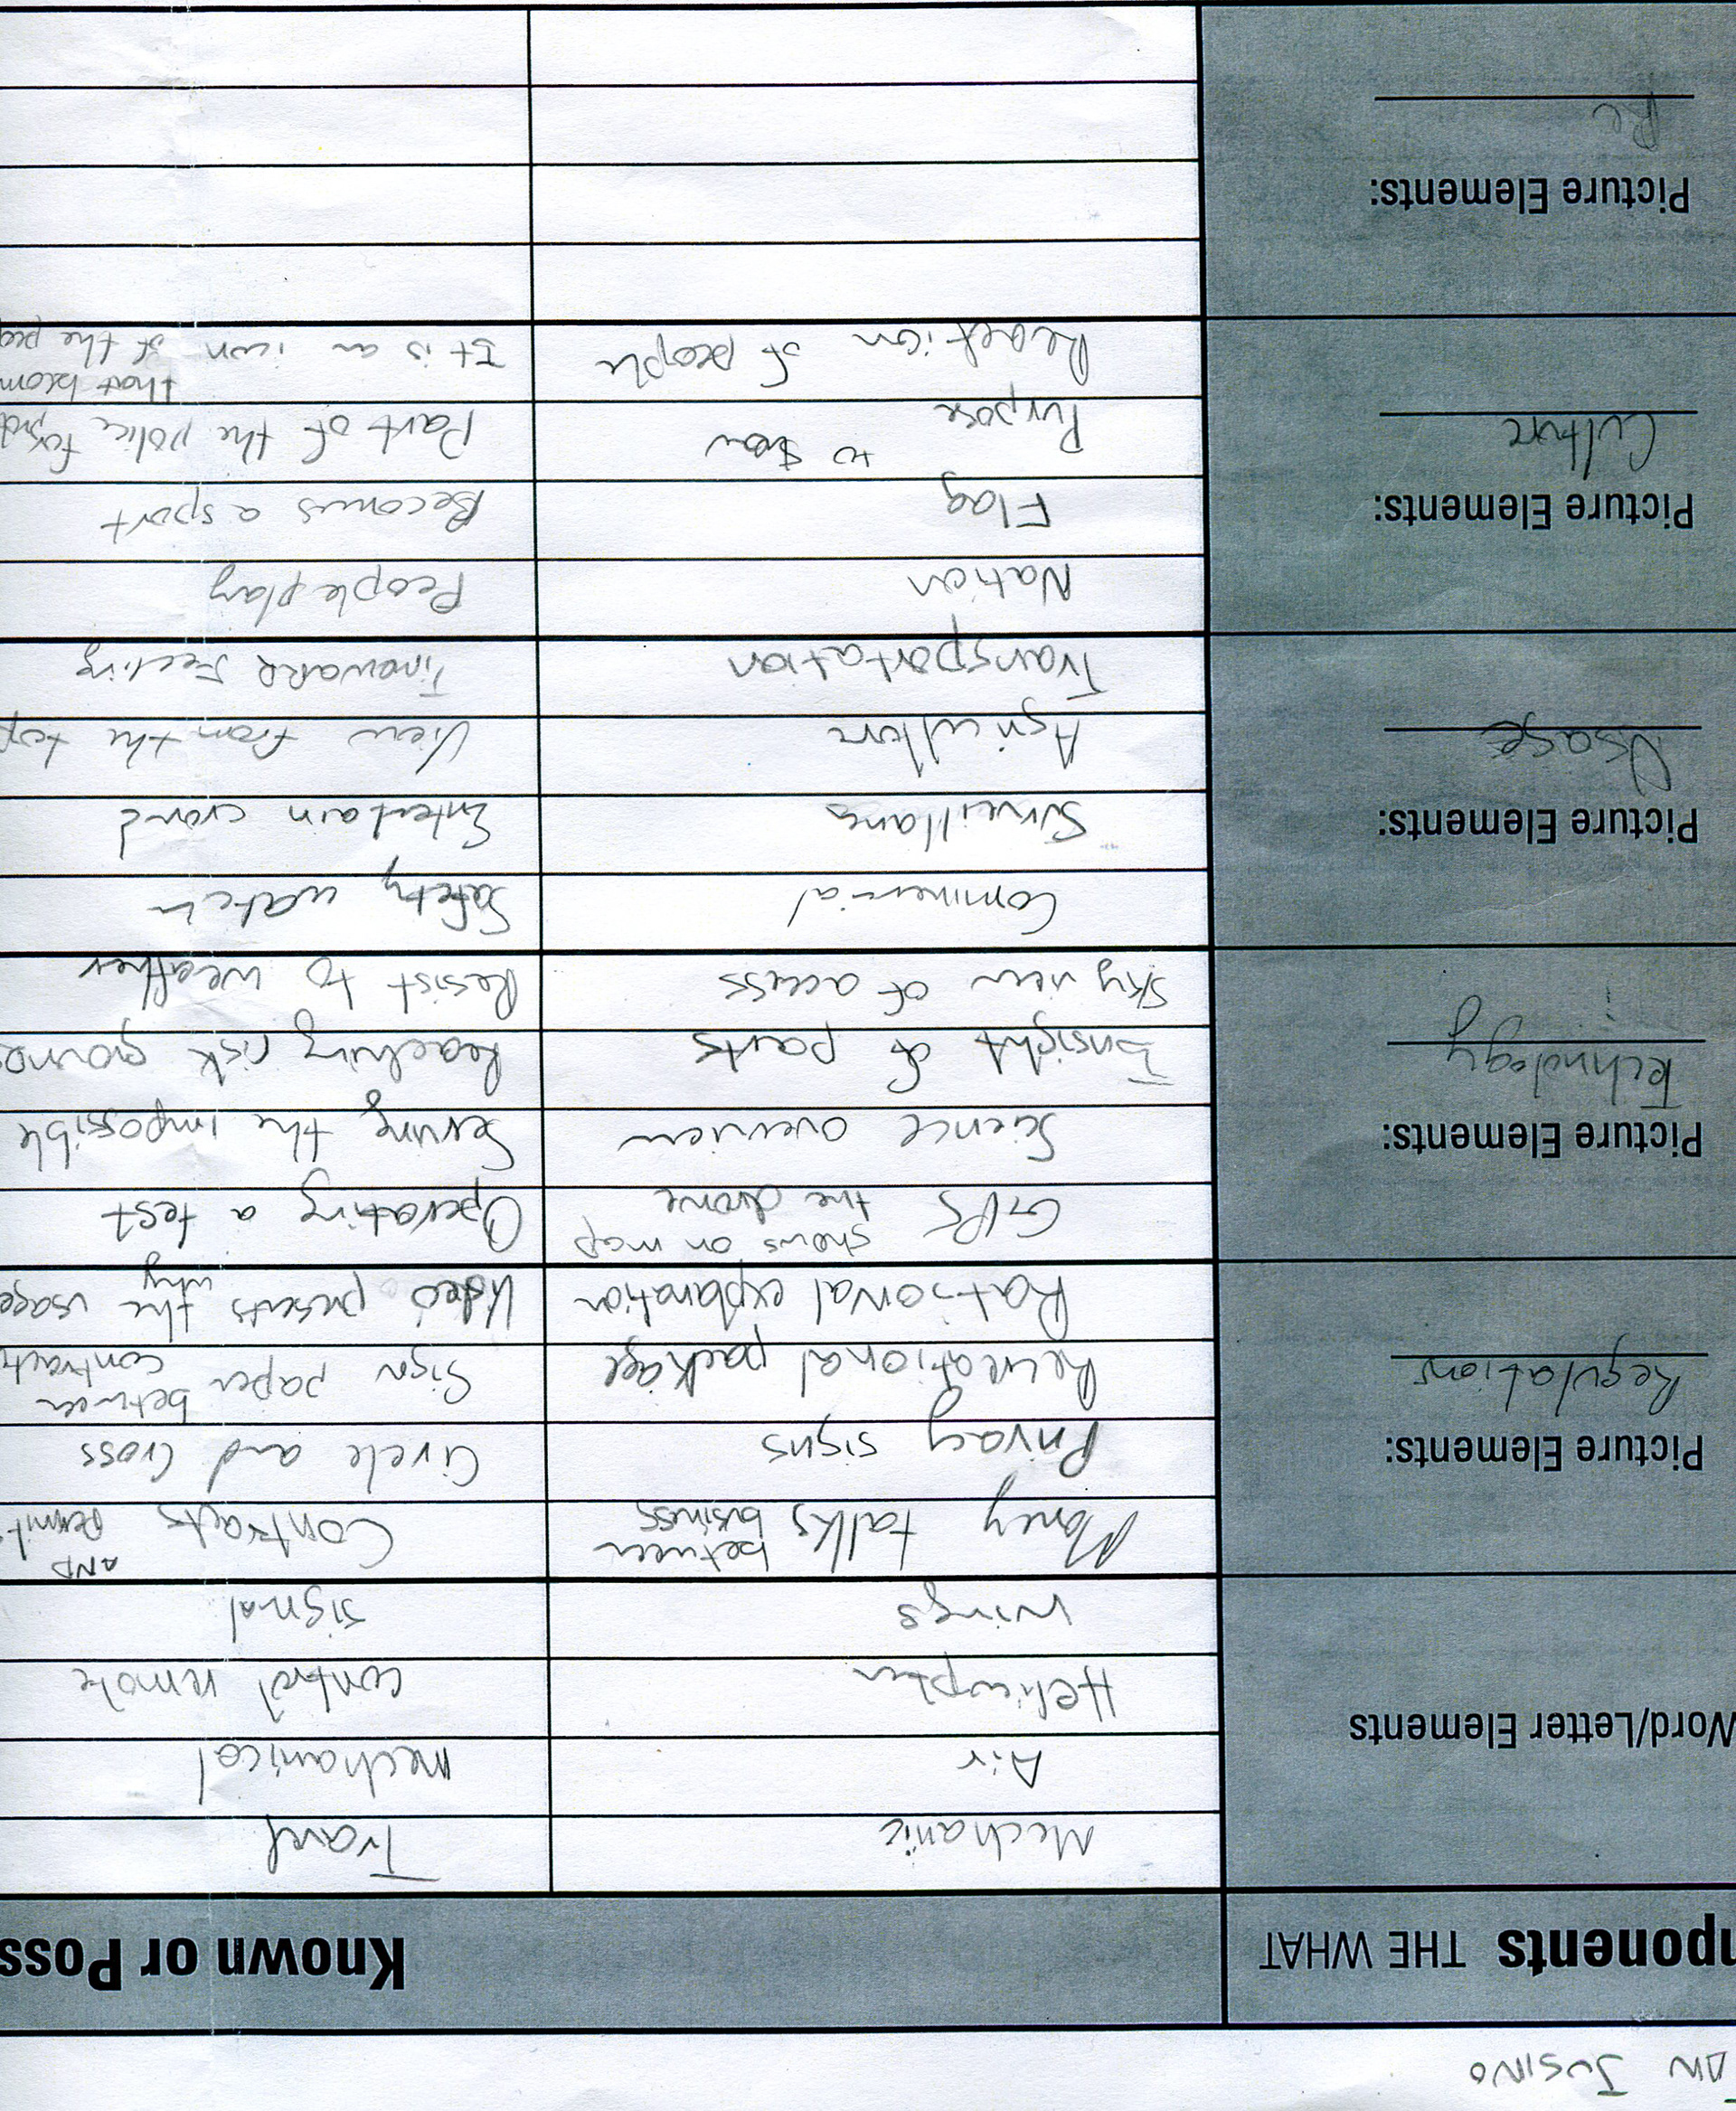 AN JUSINO
ponents THE WHAT
Known or Poss
Word/Letter Elements
Mechanic
Travel
Air
Mechanical
Helicopter
control remote
Wings
signal
Picture Elements:
Regulations
Money talks between business
Contracts AND Permit
Privacy signs
Circle and Cross
Recreational package
Sign paper between contracts
Rational explanation
Video presents why the usage
Picture Elements:
Technology
GPS shows on map the drone
Operating a test
Science overview
Serving the impossible
Insight of parts
Reaching risk ground
Sky view of access
Resist to weather
Picture Elements:
Usage
Commercial
Safety watch
Surveillance
Entertain crowd
Agriculture
View from the top
Transportation
Timeware Feeling
Picture Elements:
Culture
Nation
People play
Flag
Becomes a sport
Purpose to show
Part of the police for
Reaction of people
It is an icon that becom of the peo
Picture Elements:
Re